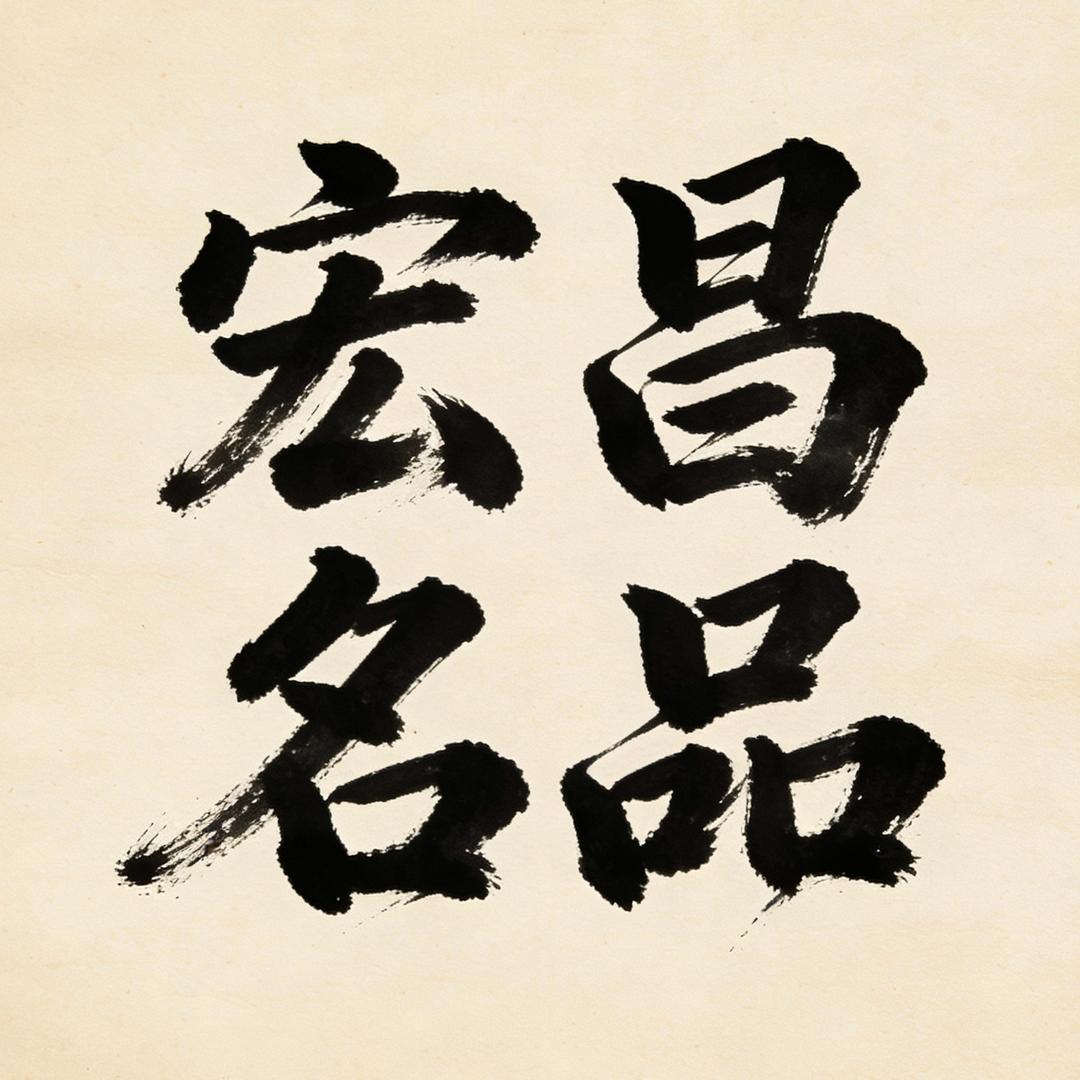 宏昌
名品